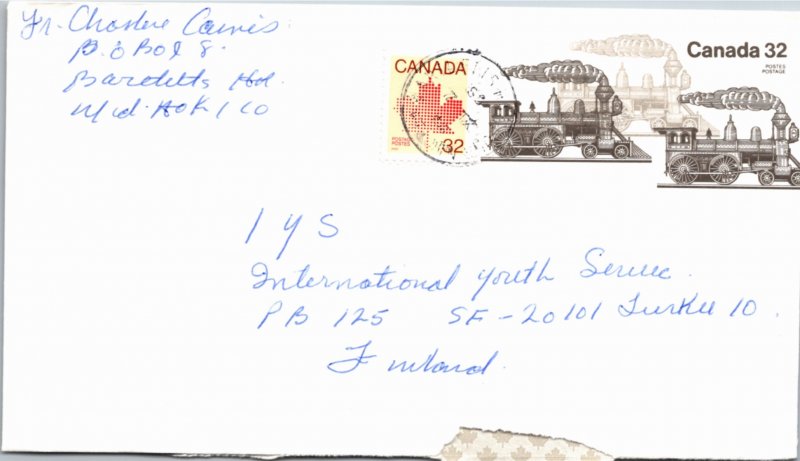 Fr. Charlene Cairns
P.O Box 8.
Bartletts Hbr.
Nfld. A0K 1C0
CANADA
POSTAGE
POSTES
32
Canada 32
POSTES
POSTAGE
I Y S
International Youth Service.
PB 125 SF-20101 Turku 10.
Finland.